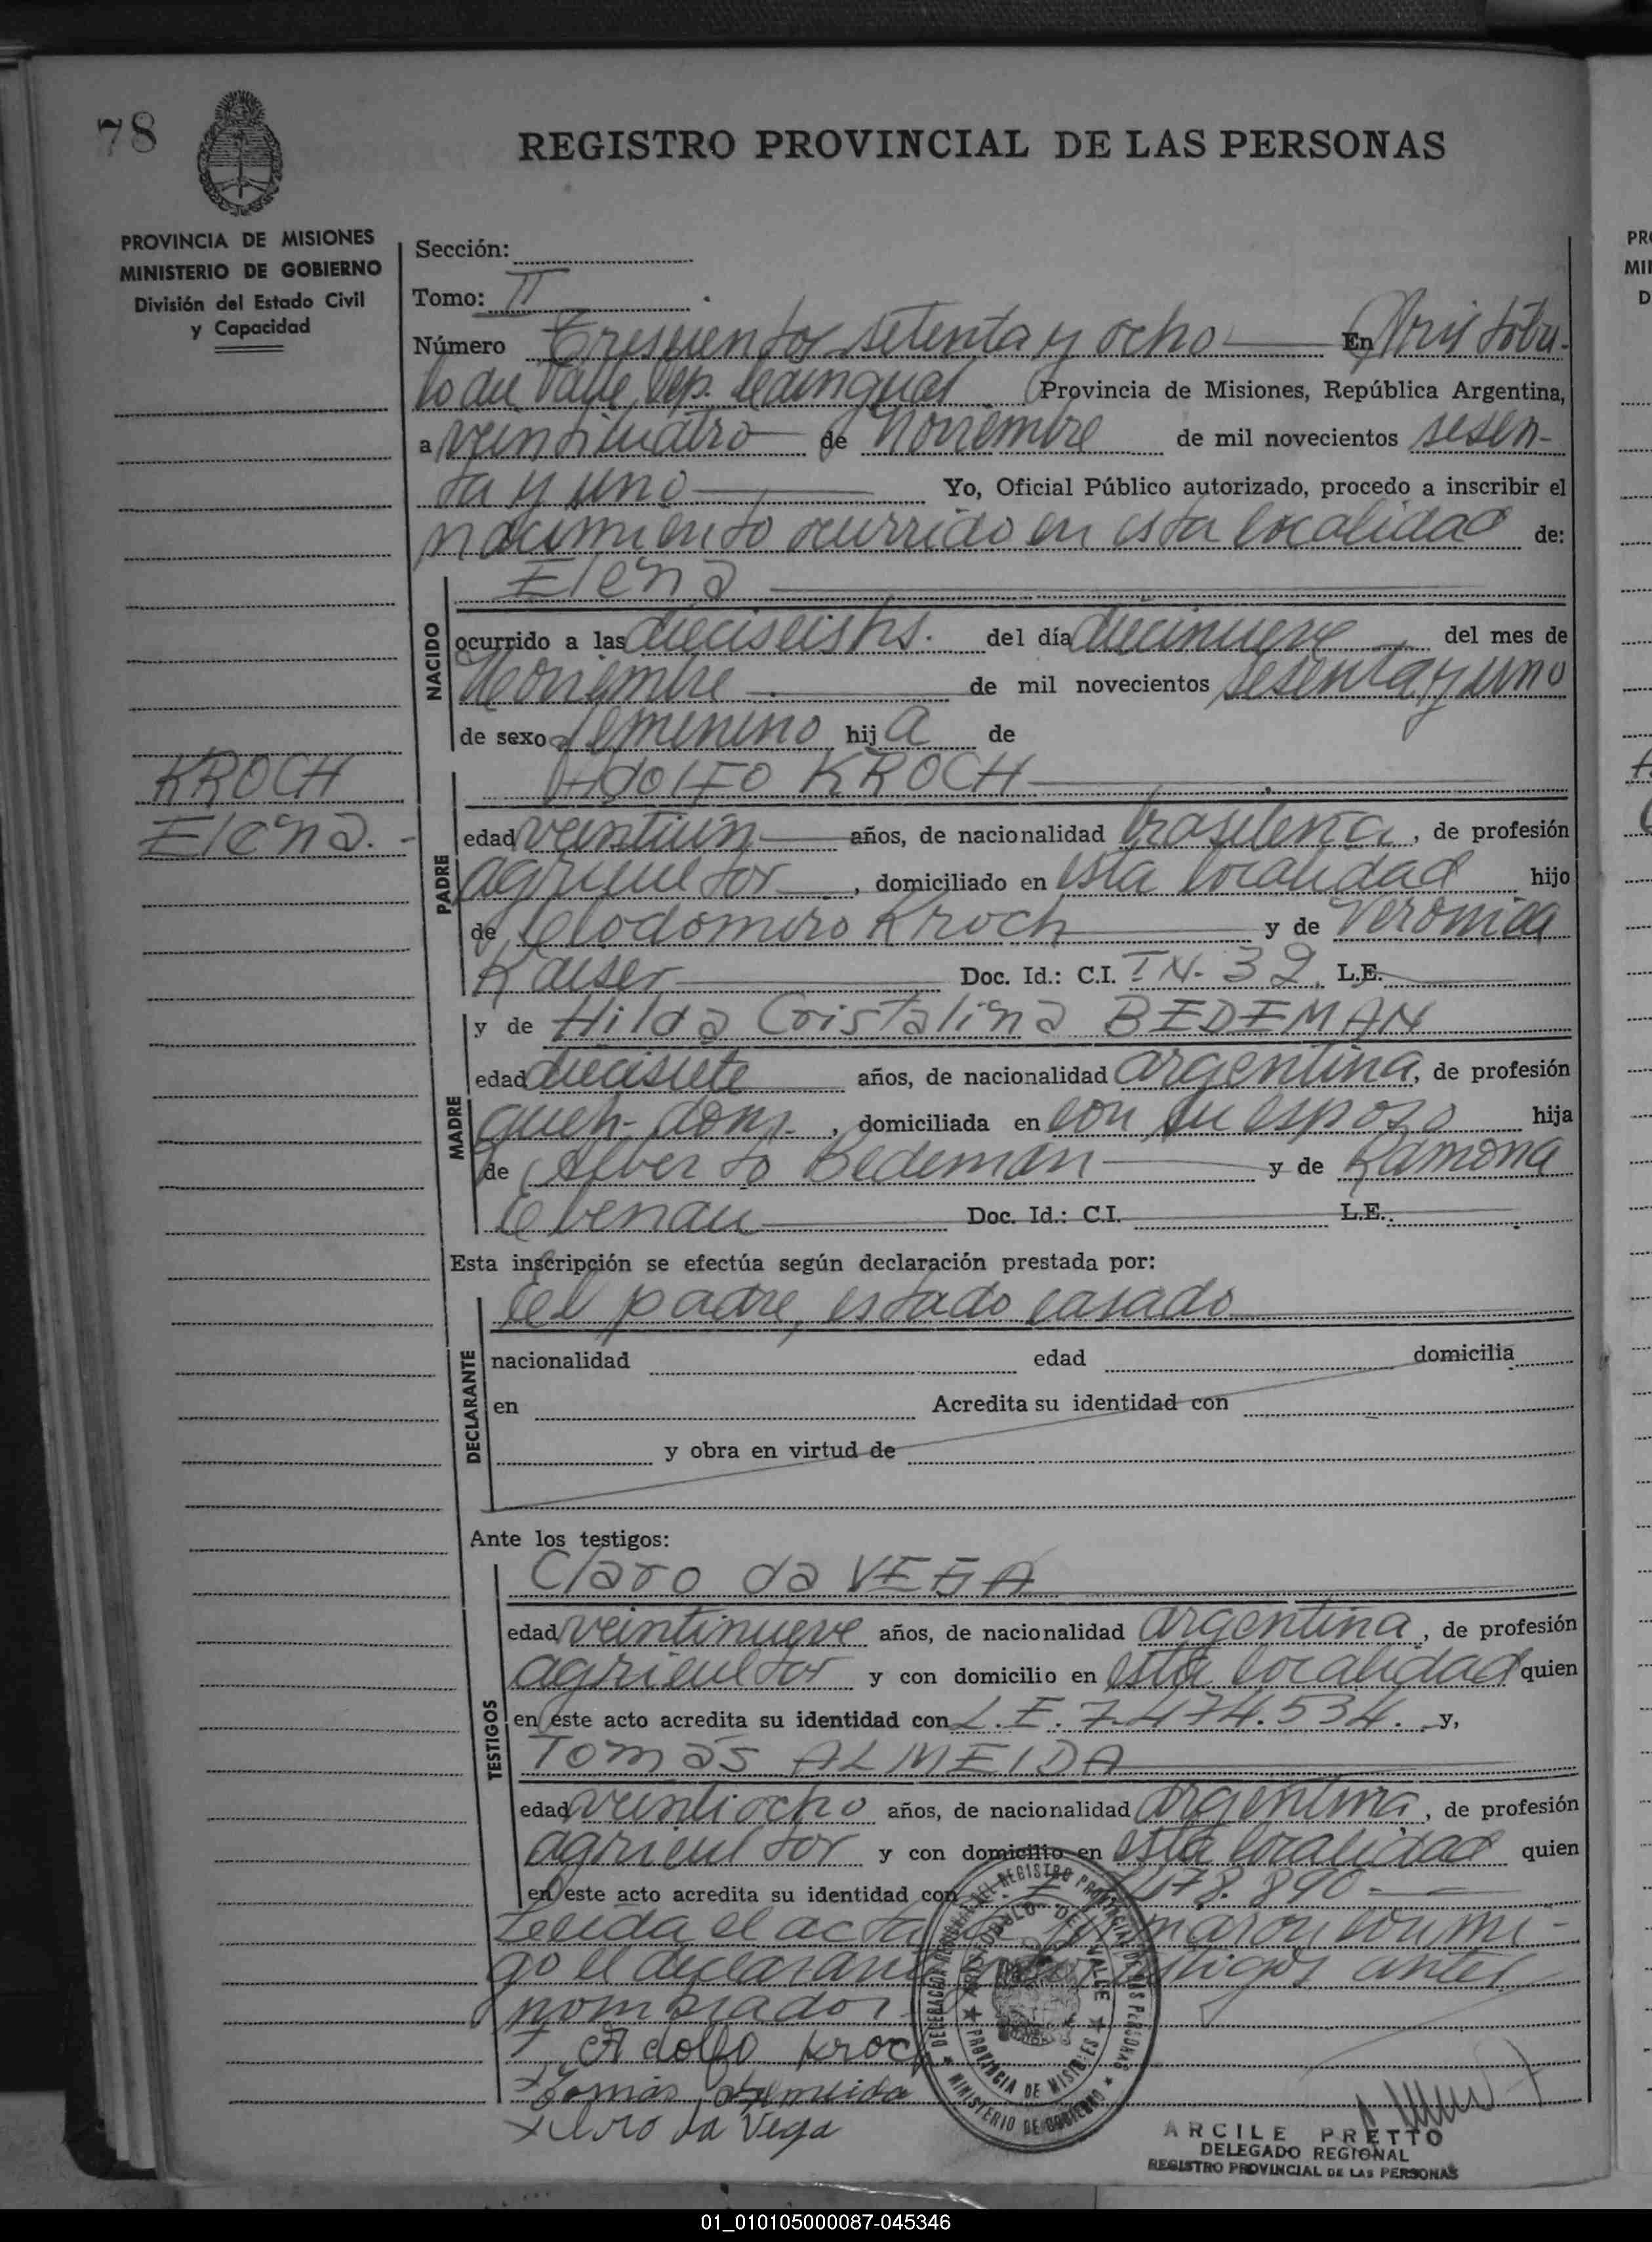 78
REGISTRO PROVINCIAL DE LAS PERSONAS
PROVINCIA DE MISIONES
MINISTERIO DE GOBIERNO
División del Estado Civil
y Capacidad
Sección:
Tomo: II
Número Trescientos setenta y ocho En Aristóbu-
lo del Valle, Dep. Provincia de Misiones, República Argentina,
a veinticuatro de Noviembre de mil novecientos sesen-
ta y uno Yo, Oficial Público autorizado, procedo a inscribir el
nacimiento ocurrido en esta localidad de:
Elena
NACIDO
ocurrido a las dieciseis hs. del día diecinueve del mes de
Noviembre de mil novecientos sesenta y uno
de sexo femenino hija de
KROCH
Elena.-
PADRE
Adolfo KROCH
edad veintiún años, de nacionalidad brasileña, de profesión
agricultor, domiciliado en esta localidad hijo
de Clodomiro Kroch y de Veronica
Kaiser Doc. Id.: C.I. T.N. 32. L.E.
MADRE
y de Hilda Cristalina BEDEMAN
edad diecisiete años, de nacionalidad argentina, de profesión
queh. dom., domiciliada en con su esposo hija
de Alberto Bedeman y de Ramona
Ebenau Doc. Id.: C.I. L.E.
Esta inscripción se efectúa según declaración prestada por:
DECLARANTE
El padre, estado casado
nacionalidad edad domicilia
en Acredita su identidad con
y obra en virtud de
Ante los testigos:
TESTIGOS
Claro da VEGA
edad veintinueve años, de nacionalidad argentina, de profesión
agricultor y con domicilio en esta localidad quien
en este acto acredita su identidad con L.E. 7.474.534. y,
Tomás ALMEIDA
edad veintiocho años, de nacionalidad argentina, de profesión
agricultor y con domicilio en esta localidad quien
en este acto acredita su identidad con 478.890-
Leida el acta firmaron conmi-
go el declarante testigos antes
nombrados.
Adolfo Kroch
Tomás Almeida
da Vega
DELEGACION REGIONAL DEL REGISTRO PROVINCIAL DE LAS PERSONAS
ARISTOBULO DEL VALLE
PROVINCIA DE MISIONES
MINISTERIO DE GOBIERNO
ARCILE PRETTO
DELEGADO REGIONAL
REGISTRO PROVINCIAL DE LAS PERSONAS
PR
MII
D
01_010105000087-045346